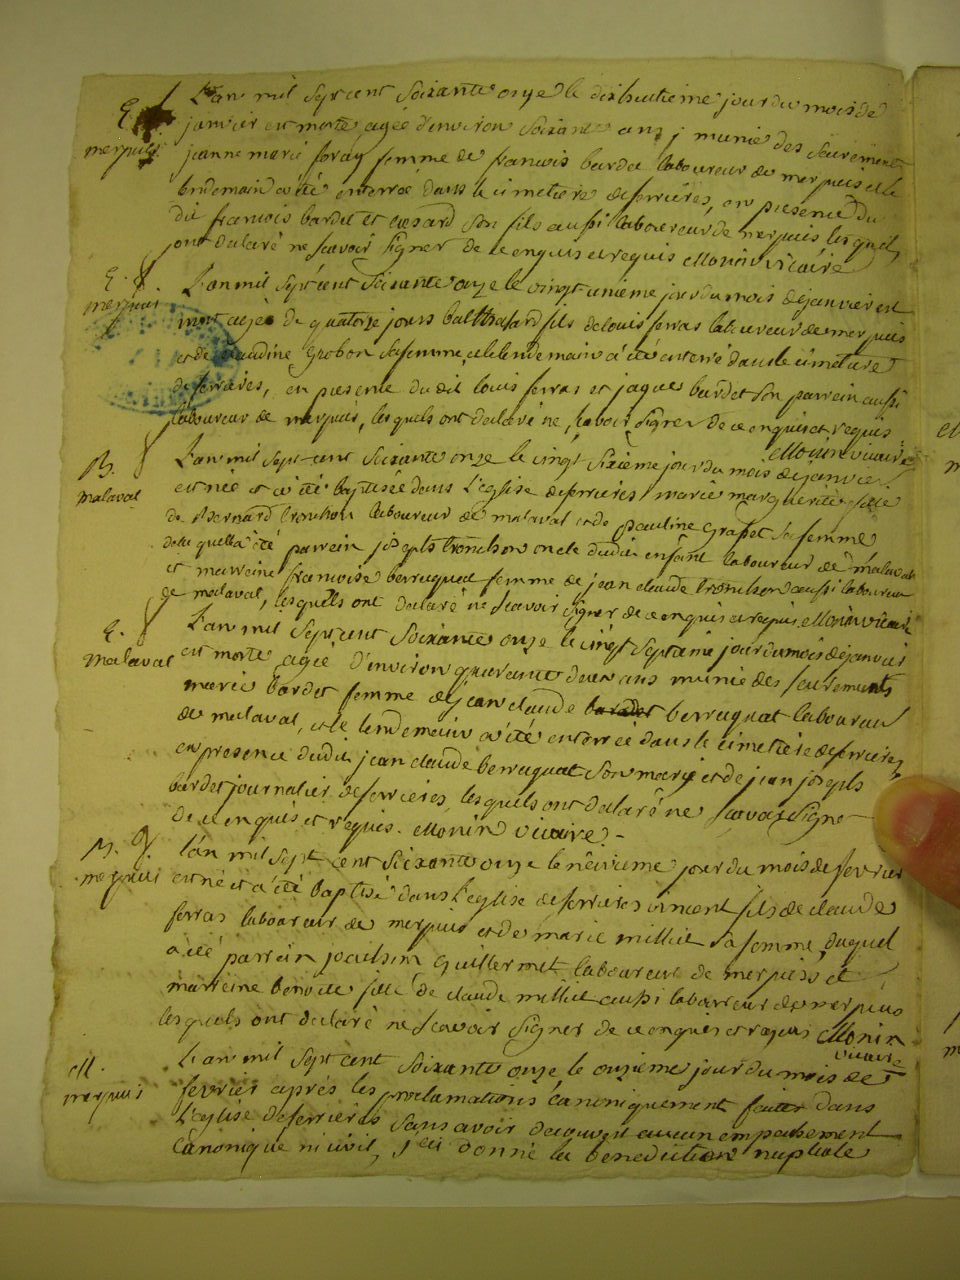 E.
merpuis
L'an mil sept cent soixante onze le dixhuitieme jour du mois de
janvier est morte agée d'environ soixante ans munie des sacrements
jeanne marie foray femme de francois bardet laboureur de merpuis et le
lendemain a été enterrée dans le cimetiere deferrières, en presence du
dit francois bardet et cesard son fils aussi laboureur de merpuis lesquels
ont declaré ne scavoir signer de ce enquis et requis Monin vicaire
E. f.
merpuis
L'an mil sept cent soixante onze le vingt unieme jour du mois de janvier est
mort agé de quatorze jours balthasard fils de louis ferras laboureur de merpuis
et de claudine grobon sa femme, et le lendemain a été enterré dans le cimetiere
deferrières, en presence du dit louis ferras et jaque bardet son parrein aussi
laboureur de merpuis, lesquels ont declaré ne scavoir signer de ce enquis et requis
Monin vicaire
B.
malaval
L'an mil sept cent soixante onze le vingt sixieme jour du mois de janvier
est née et a été baptisée dans l'eglise deferrieres marie marguerite fille
de Bernard tronchon laboureur de malaval et de pauline grapet sa femme
de laquelle a été parrein joseph tronchon oncle dudit enfant laboureur de malaval
et marreine francoise berruquat femme de jean claude tronchon aussi laboureur
de malaval, lesquels ont declaré ne scavoir signer de ce enquis et requis. Monin vicaire
E.
malaval
L'an mil sept cent soixante onze le vingt septieme jour du mois de janvier
est morte agée d'environ quarante deux ans munie des sacrements
marie bardet femme de jean claude bardet berruquat laboureur
de malaval, et le lendemain a été enterrée dans le cimetiere deferrieres
en presence dudit jean claude berruquat son mary et de jean joseph
bardet journalier deferrieres, lesquels ont declaré ne scavoir signe
de ce enquis et requis. Monin vicaire -
B. f.
merpuis
l'an mil sept cent soixante onze le neuvieme jour du mois de fevrier
est né et a été baptisé dans l'eglise deferrieres vincent fils de claude
ferras laboureur de merpuis et de marie milliet sa femme, duquel
a été parrein joachim guillermet laboureur de merpuis et
marreine benoite fille de claude milliet aussi laboureur de merpuis
lesquels ont declaré ne scavoir signer de ce enquis et requis Monin
vicaire
M.
merpuis
L'an mil sept cent soixante onze le onzieme jour du mois de
fevrier après les proclamations canoniquement faittes dans
l'eglise deferrieres sans avoir decouvert aucun empechement
canonique ni civil, j'ai donné la benediction nuptiale